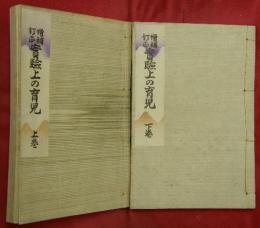 増補
訂正
實驗上の育児
上巻
増補
訂正
實驗上の育児
下巻